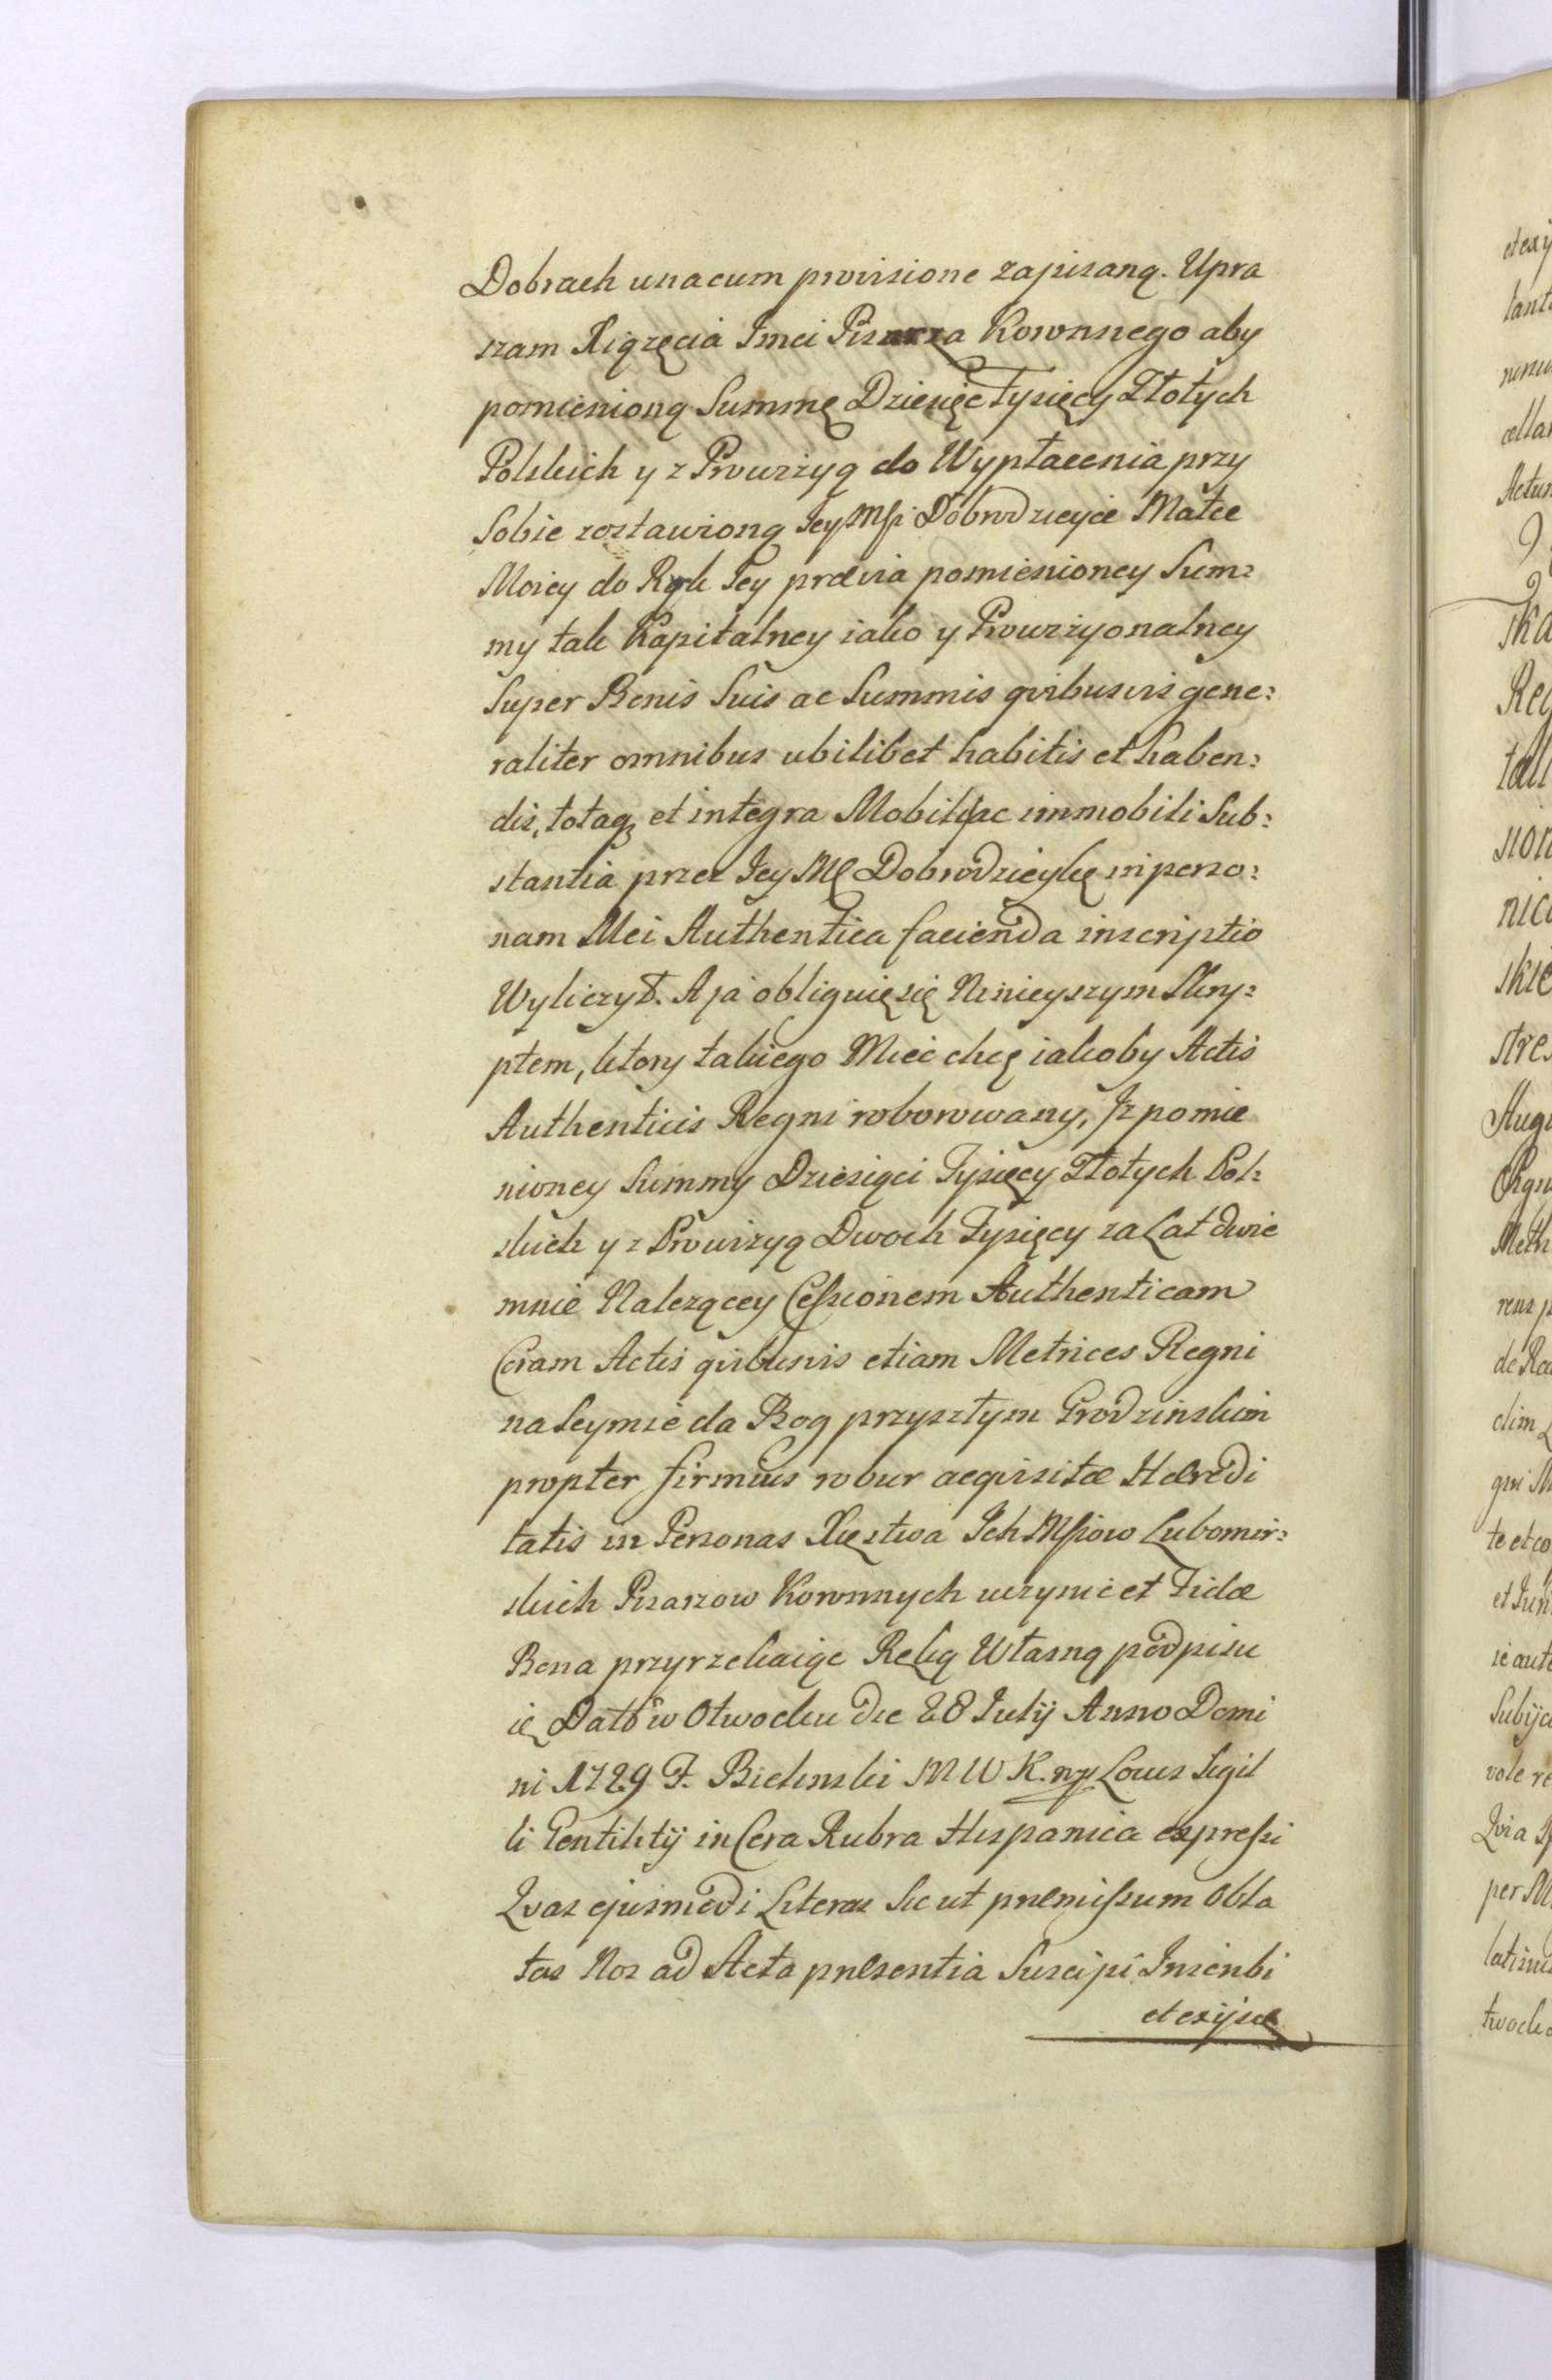 Dobrach unacum prowisione zapisaną. Upra
szam Xiązęcia Jmci Pisarza Koronnego aby
pomienioną Summę Dziesięc Tysięcy Złotych
Polskich y z Prowizyą do Wypłacenia przy
Sobie zostawioną Jey Msci Dobrodzieyce Matce
Moiey do Rąk Jey prævia pomienioney Sum=
my tak Kapitalney iako y Prowizyonalney
Super Bonis Suis ac Summis qvibusvis gene=
raliter omnibus ubilibet habitis et haben=
dis, totaq; et integra Mobili ac immobili Sub=
stantia przez Jey Mć Dobrodzieykę in perso=
nam Mei Authentica facienda inscriptio
Wyliczył. A ja obliguię się Ninieyszym Skry=
ptem, ktory takiego Miec chcę iakoby Actis
Authenticis Regni roborowany, Jz pomie
nioney Summy Dziesiąci Tysięcy Złotych Pol=
skich y z Prowizyą Dwoch Tysięcy za Lat dwie
mnie Nalezącey Cessionem Authenticam
Coram Actis qvibusvis etiam Metrices Regni
na Seymie da Bog przyszłym Grodzinskim
propter firmius robur acqvisitæ Hæredi
tatis in Personas Xięstwa Jch Msciow Lubomir=
skich Pisarzow Koronnych uczynic et Fidæ
Bona przyrzekaiąc Ręką Własną podpisu
ię Datt w Otwocku die 28 Julij Anno Domi
ni 1729 F. Bielinski M W K. mp Locus Sigil
li Gentilitij in Cera Rubra Hispanica expressi
Qvas ejusmodi Literas Sic ut præmissum Obla
tas Nos ad Acta præsentia Suscipi Inscribi
et exijsd